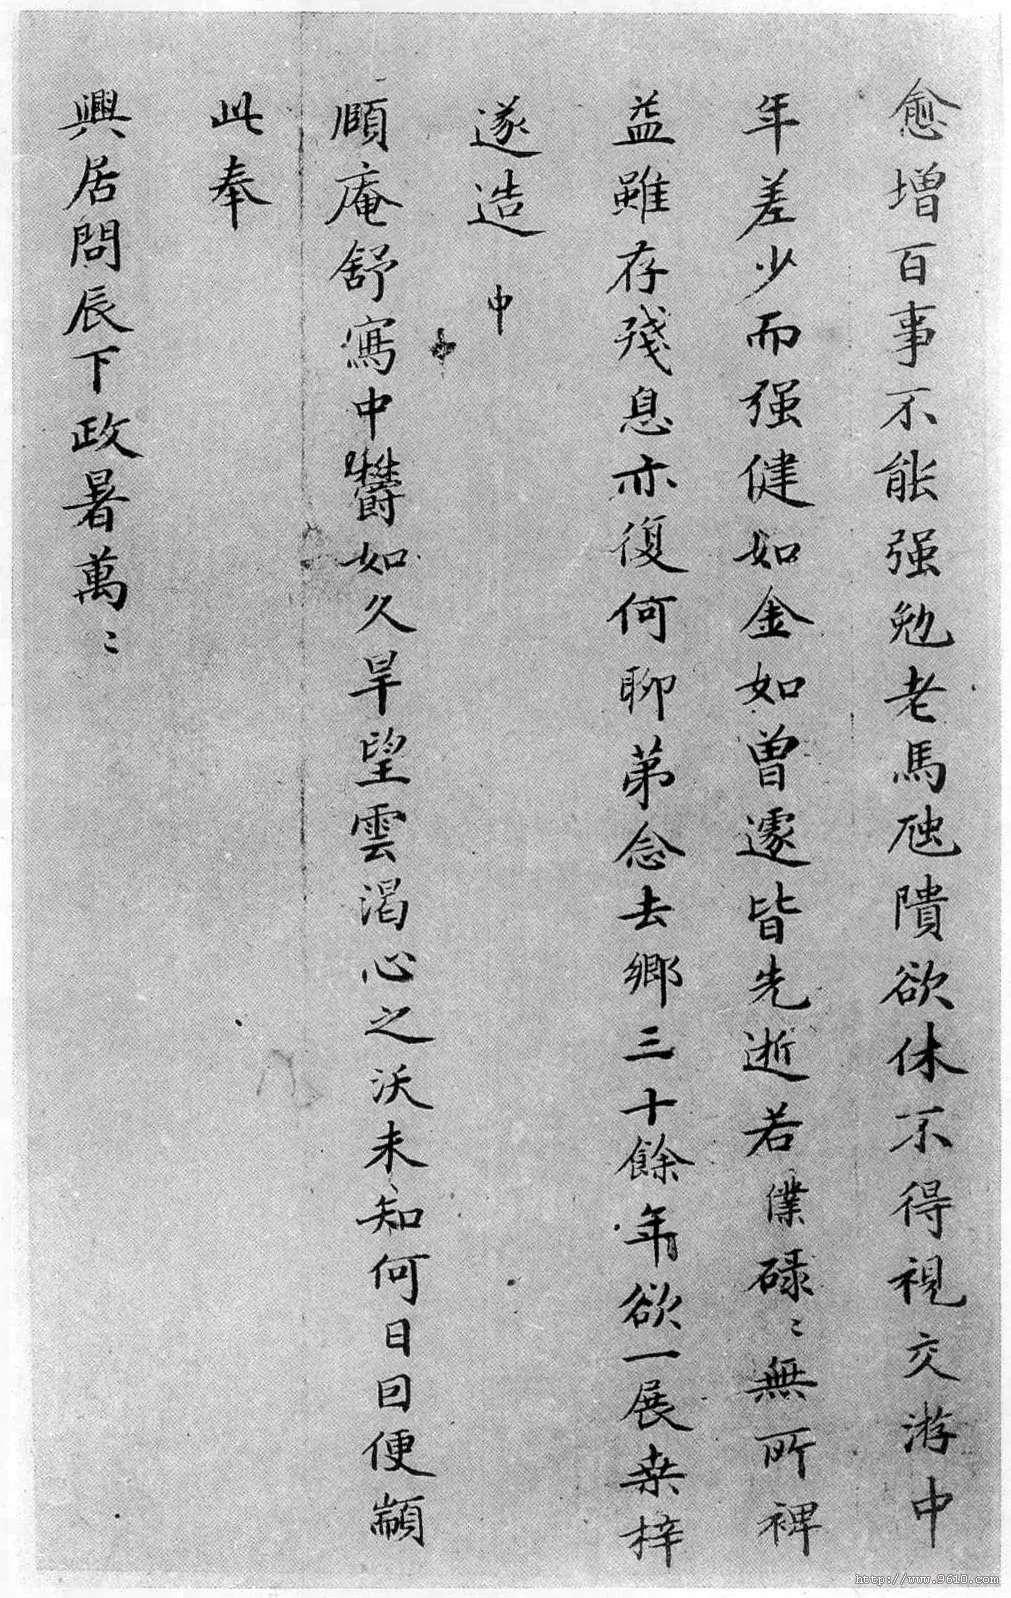 愈增百事不能强勉老馬虺隤欲休不得視交游中
年差少而强健如金如曾遽皆先逝若僕碌〻無所裨
益雖存殘息亦復何聊第念去鄉三十餘年欲一展桒梓
遂造中
頤庵舒寫中欝如久旱望雲渴心之沃未知何日因便顓
此奉
興居問辰下政暑萬〻
http://www.9610.com